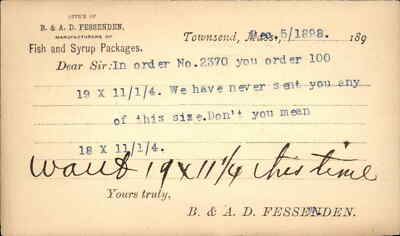 OFFICE OF
B. & A. D. FESSENDEN.
MANUFACTURERS OF
Fish and Syrup Packages.
Townsend, Mass., Dec. 5/1898. 189
Dear Sir: In order No.2370 you order 100
19 X 11/1/4. We have never sent you any
of this size.Don't you mean
18 X 11/1/4.
want 19 x 11 1/4 this time
Yours truly,
B. & A. D. FESSENDEN.